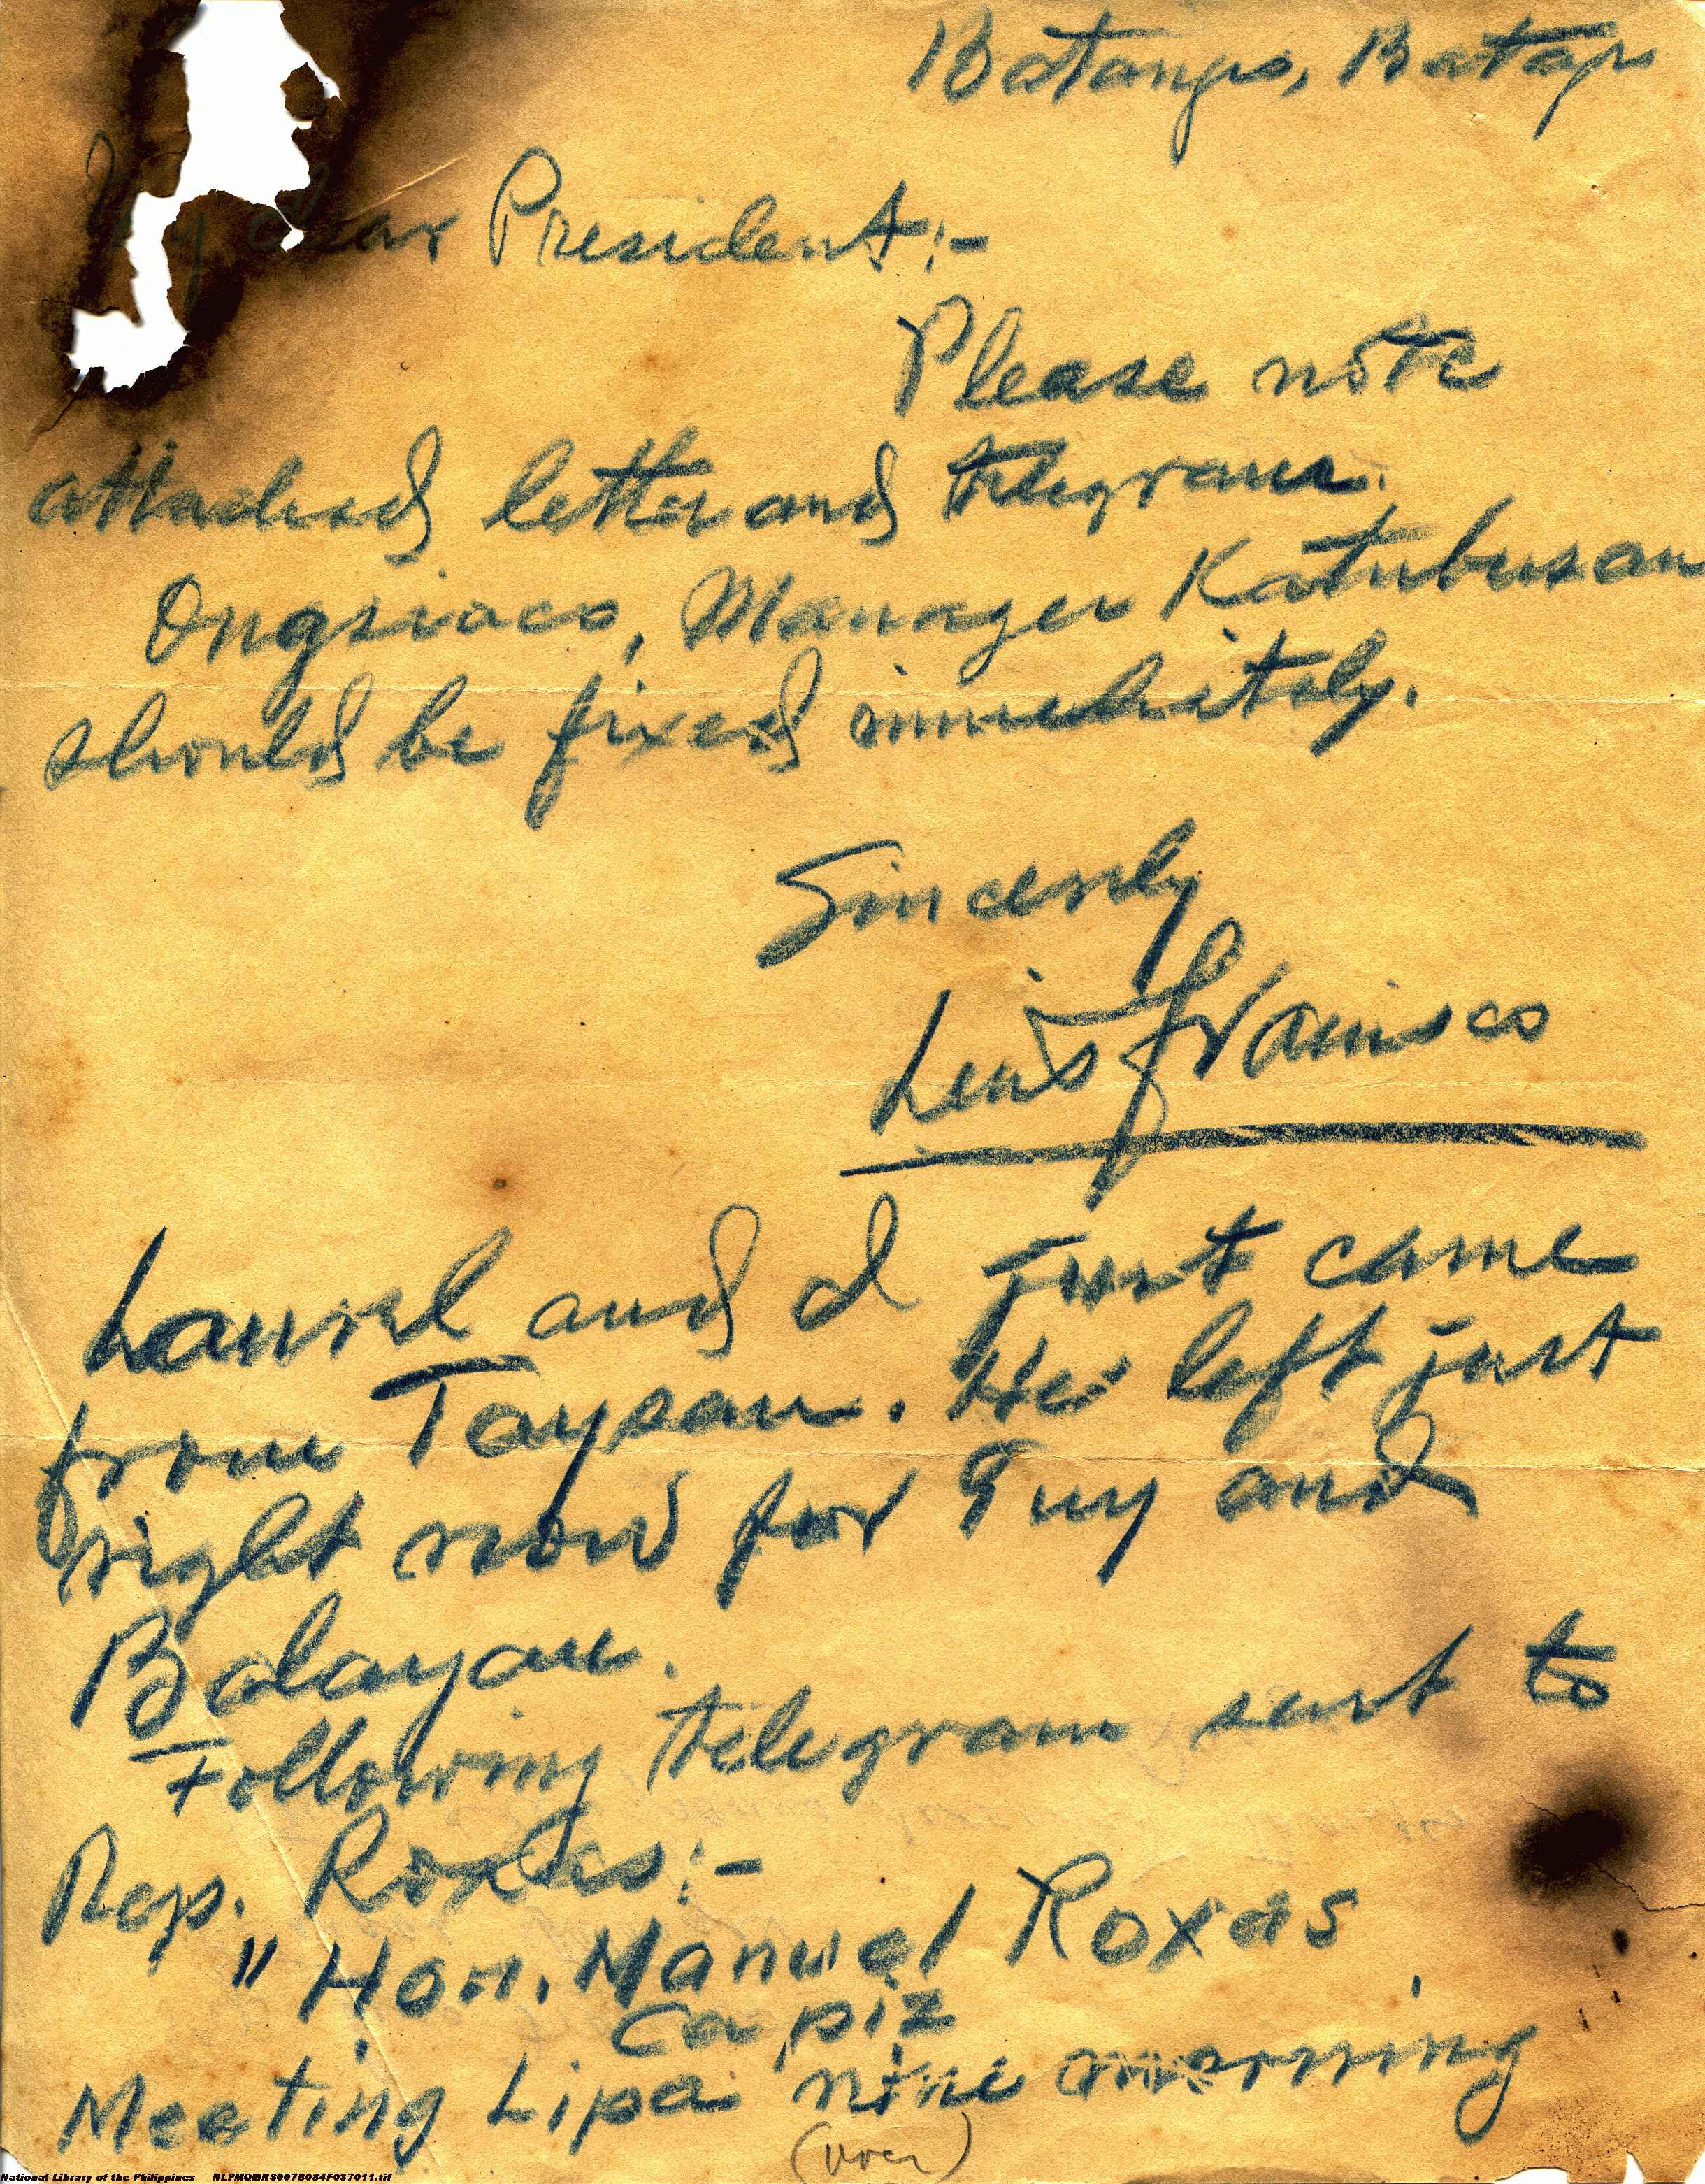 Batangas, Batags
My dear President:-
Please note
attached letter and telegram.
Ongsiaco, Manager Katubusan
should be fixed immediately.
Sincerely
Luis Francisco
Laurel and I just came
from Taysan. He left just
right now for Guy and
Balayan.
Following telegram sent to
Rep. Roxas:-
"Hon. Manuel Roxas
Capiz
Meeting Lipa nine morning
(over)
National Library of the Philippines NLPMQMNS007B084F037011.tif